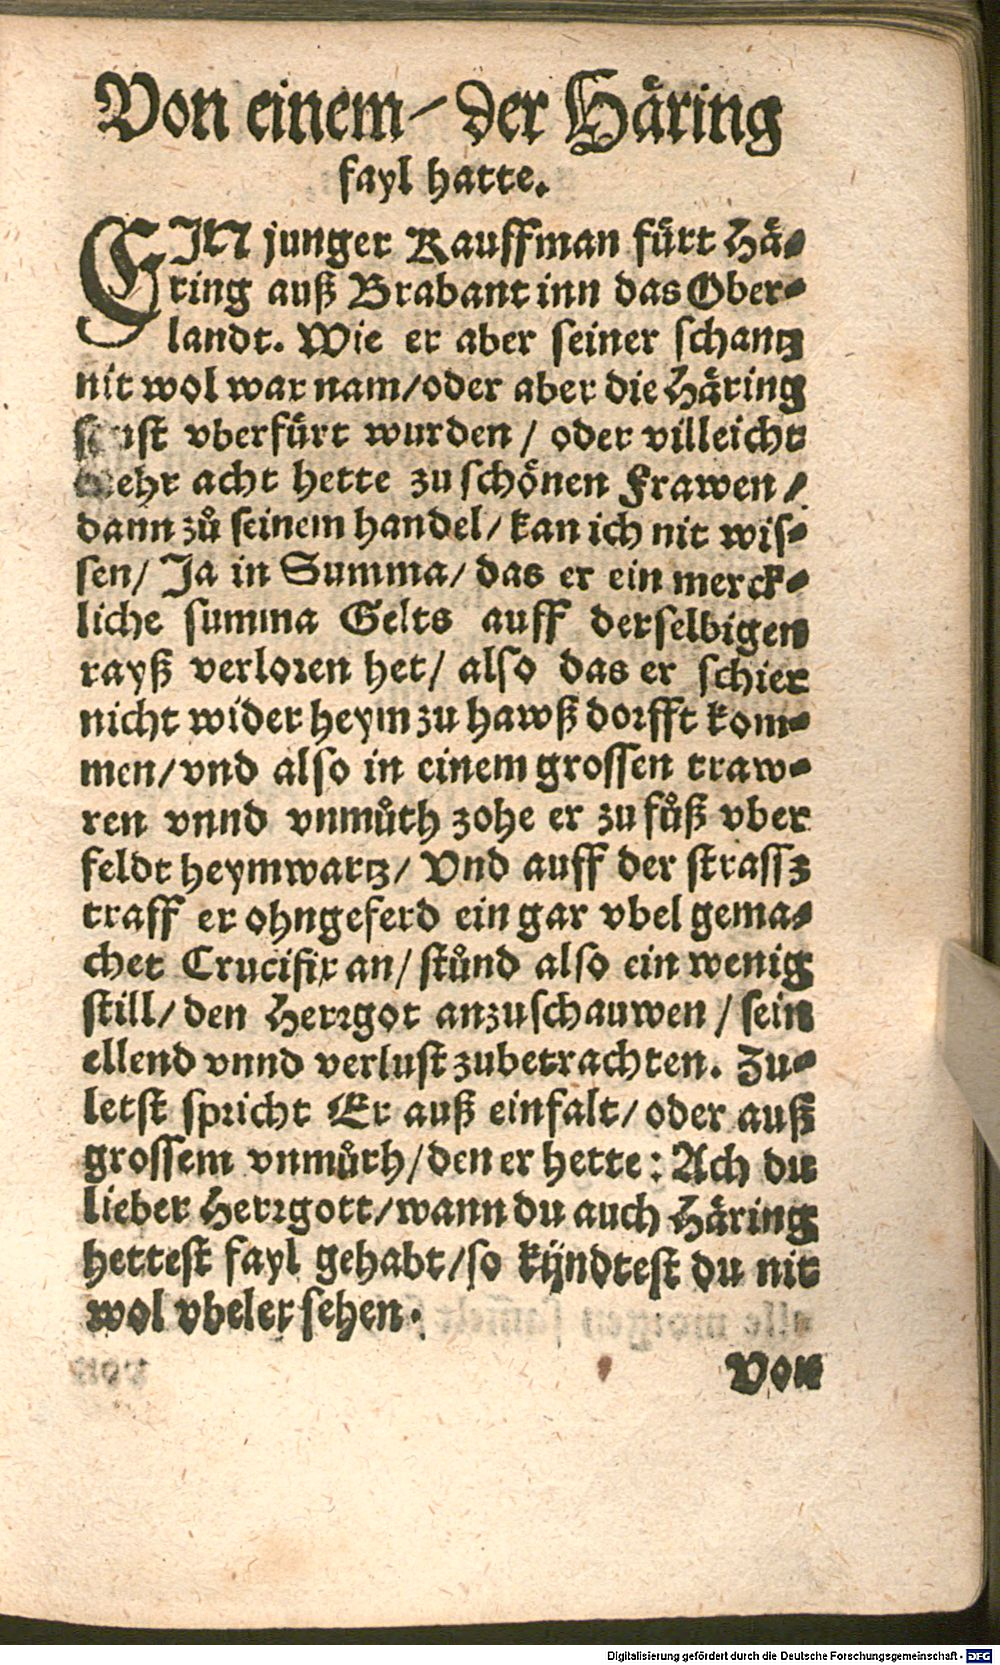 Von einem / der Häring
fayl hatte.
EIN junger Kauffman fürt Hä⸗
ring auß Brabant inn das Ober⸗
landt. Wie er aber seiner schantz
nit wol war nam/oder aber die Häring
sunst vberfürt wurden / oder villeicht
mehr acht hette zu schönen Frawen /
dann zů seinem handel/ kan ich nit wis⸗
sen/ Ja in Summa/ das er ein merck⸗
liche summa Gelts auff derselbigen
rayß verloren het/ also das er schier
nicht wider heym zu hawß dorfft kom⸗
men/vnd also in einem grossen traw⸗
ren vnnd vnmůth zohe er zu fůß vber
feldt heymwartz/ Vnd auff der strassz
traff er ohngeferd ein gar vbel gema⸗
chet Crucifix an/ stůnd also ein wenig
still/ den Herrgot anzuschauwen / sein
ellend vnnd verlust zubetrachten. Zu⸗
letst spricht Er auß einfalt/ oder auß
grossem vnmůth/ den er hette: Ach du
lieber Herrgott/wann du auch Häring
hettest fayl gehabt/so kündtest du nit
wol vbeler sehen.
Von
Digitalisierung gefördert durch die Deutsche Forschungsgemeinschaft - DFG